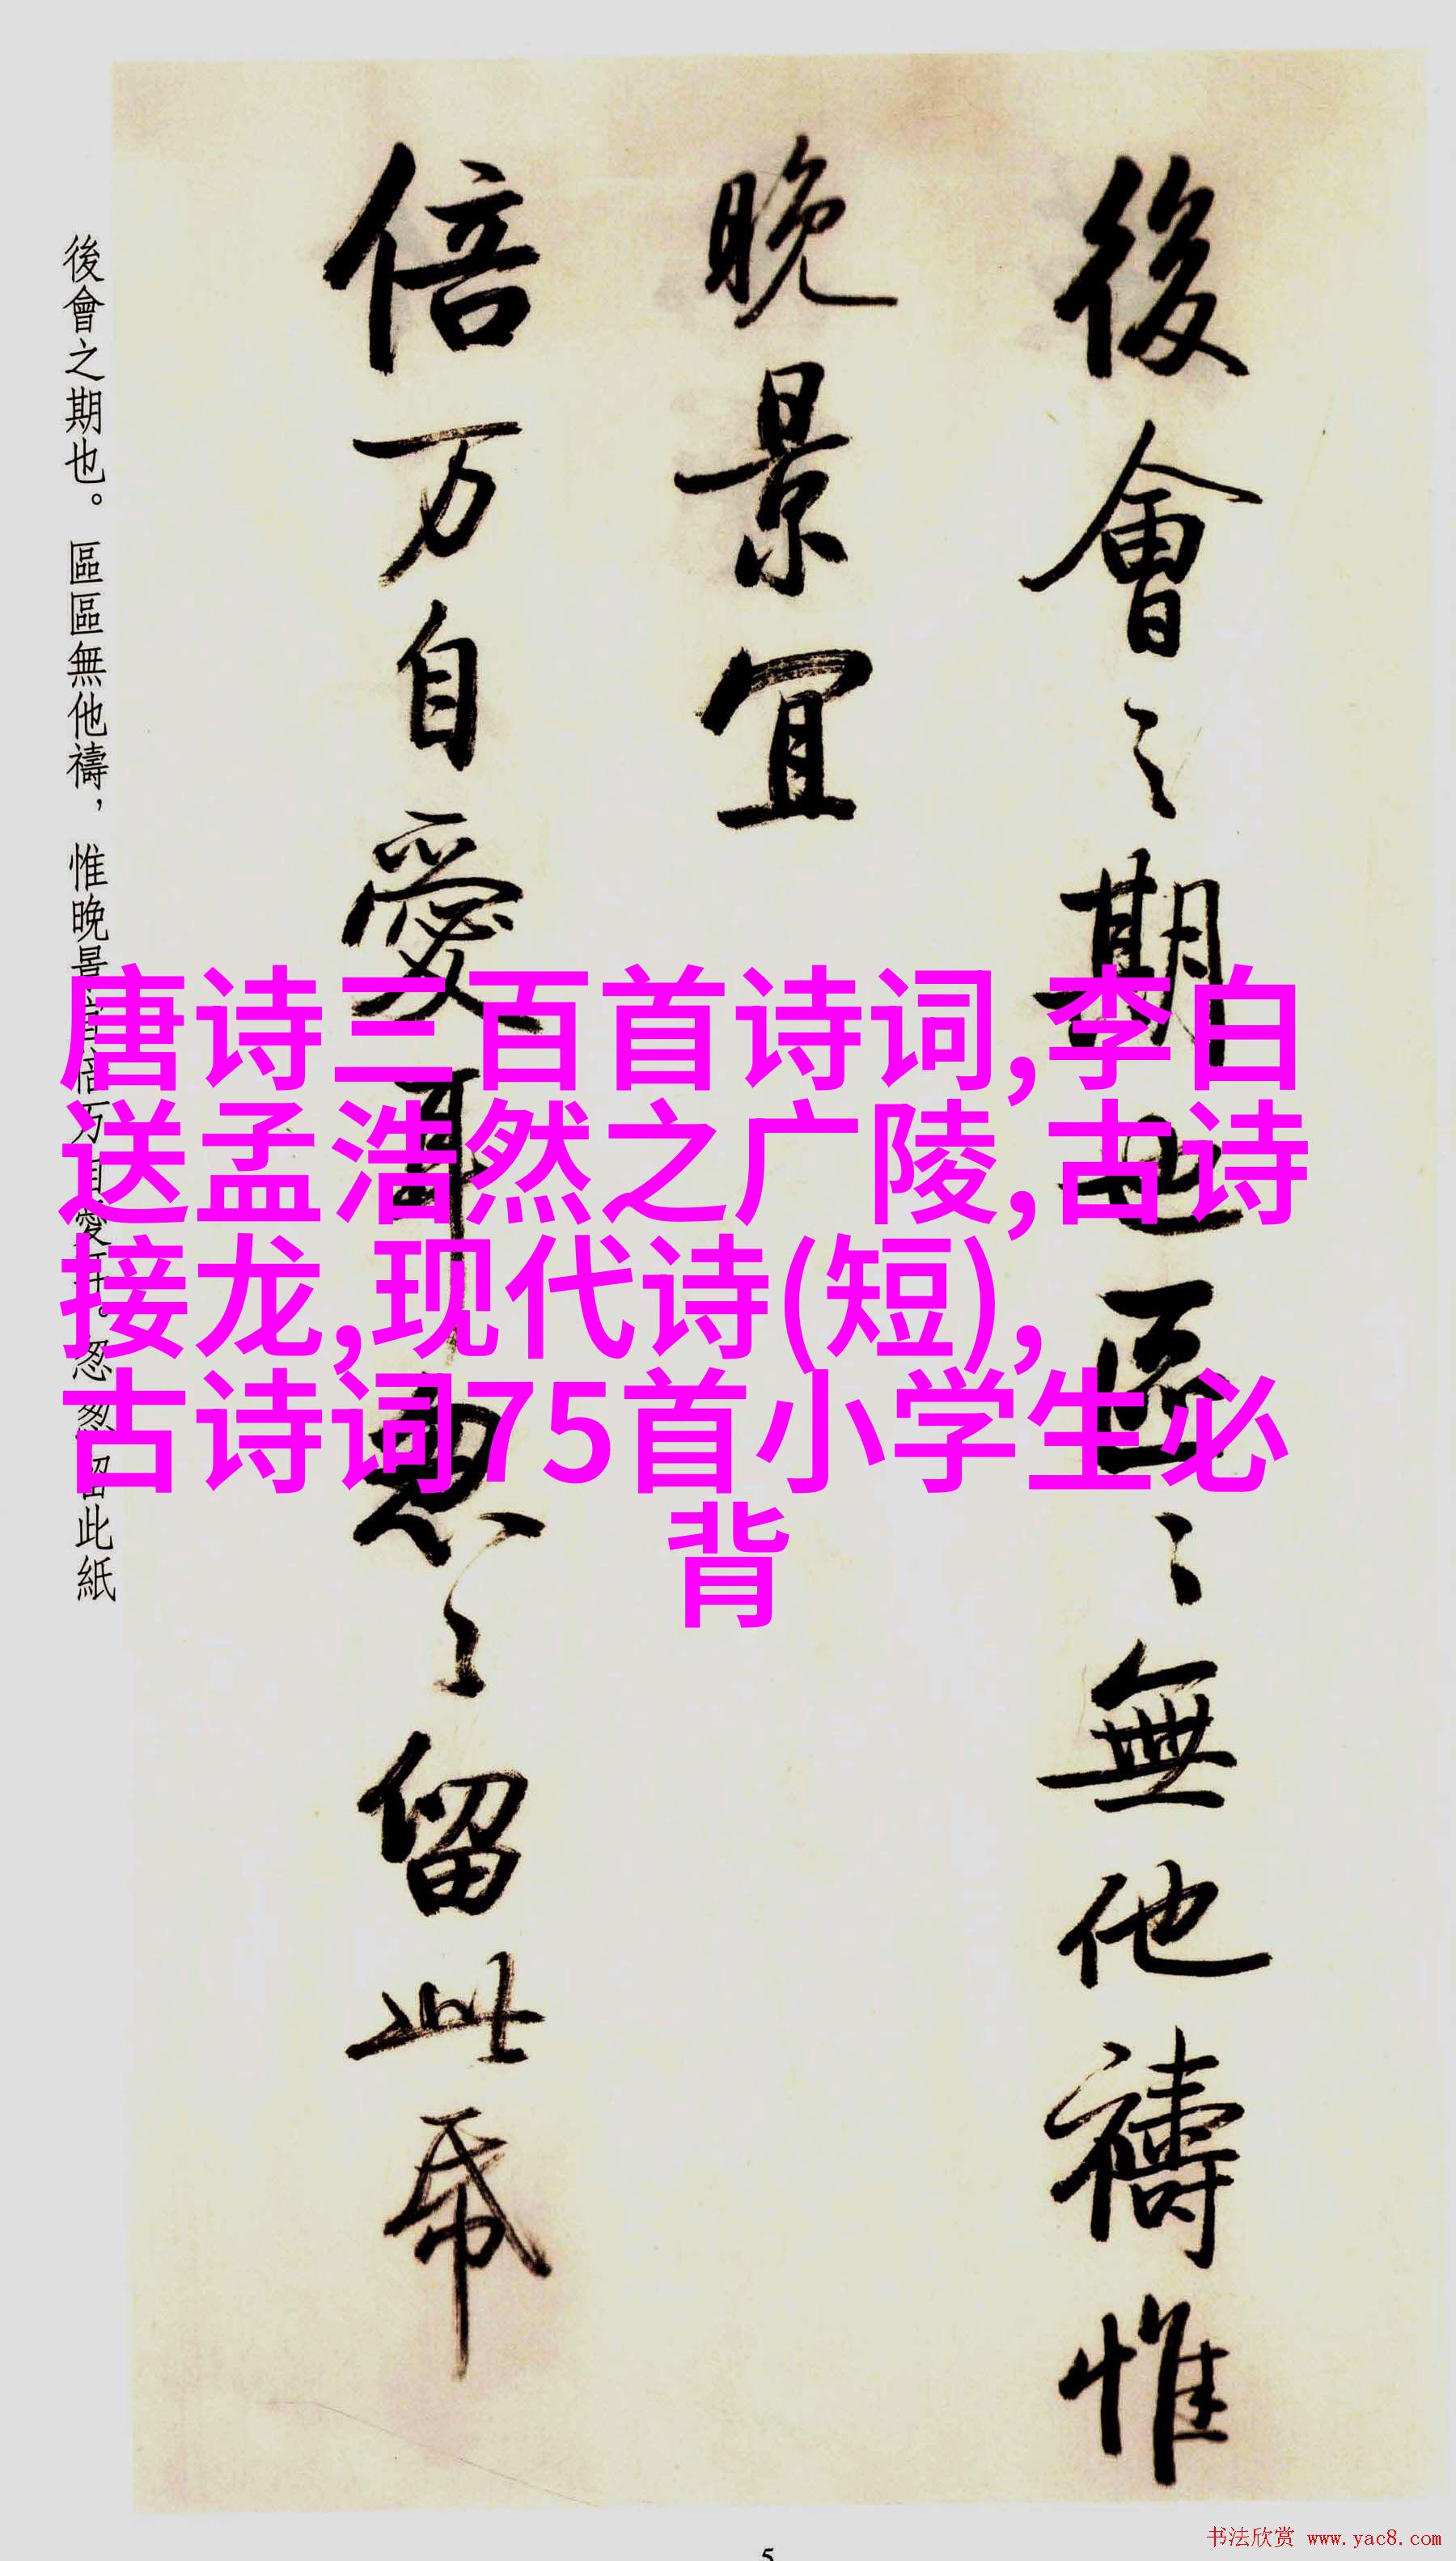 後會之期也區〻無他禱惟
晚景宜
倍万自愛耳怱〻留此紙
後會之期也。區區無他禱，惟晚景宜倍万自愛耳。怱怱留此紙
唐诗三百首诗词,李白
送孟浩然之广陵,古诗
接龙,现代诗(短),
古诗词75首小学生必
背
书法欣赏 www.yac8.com
5